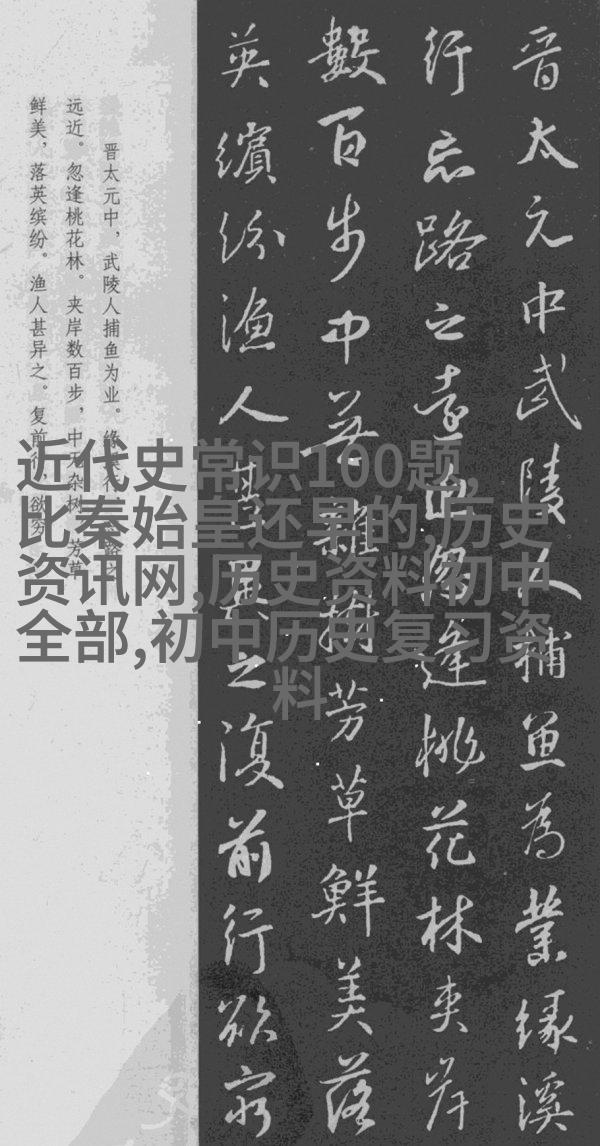 晋太元中武陵人捕魚為業緣溪
行忘路之遠近忽逢桃花林夾岸
數百步中無雜樹芳草鮮美落
英繽紛漁人甚異之復前行欲窮
晋太元中，武陵人捕鱼为业。缘溪行，忘路之
远近。忽逢桃花林。夹岸数百步，中无杂树，芳草
鲜美，落英缤纷。渔人甚异之。复前行，欲穷
近代史常识100题,
比秦始皇还早的,历史
资讯网,历史资料初中
全部,初中历史复习资
料